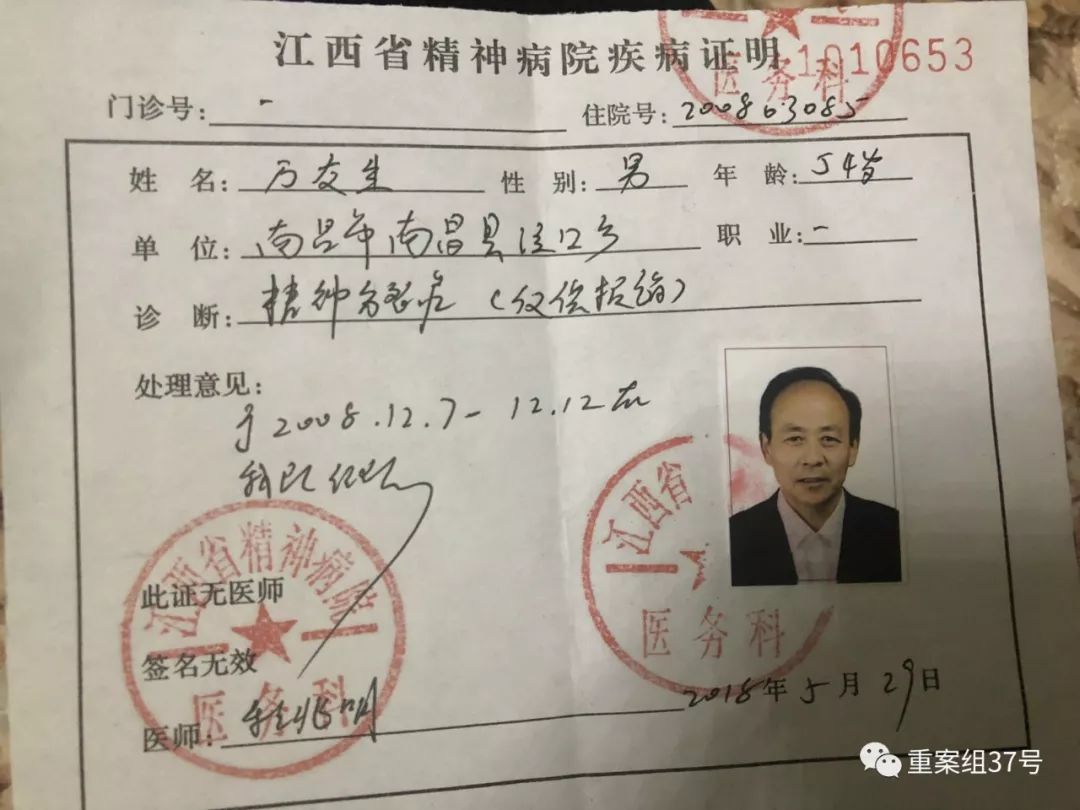 江西省精神病院疾病证明
1010653
医务科
门诊号: 一 住院号: 200863085
姓 名: 万友生 性 别: 男 年 龄: 54岁
单 位: 南昌市南昌县泾口乡 职 业: 一
诊 断: 精神分裂症(仅供报销)
处理意见:
于2008.12.7-12.12在
我院住院
江西省
医务科
江西省精神病院
医务科
此证无医师
签名无效
2018年5月29日
医师:
重案组37号